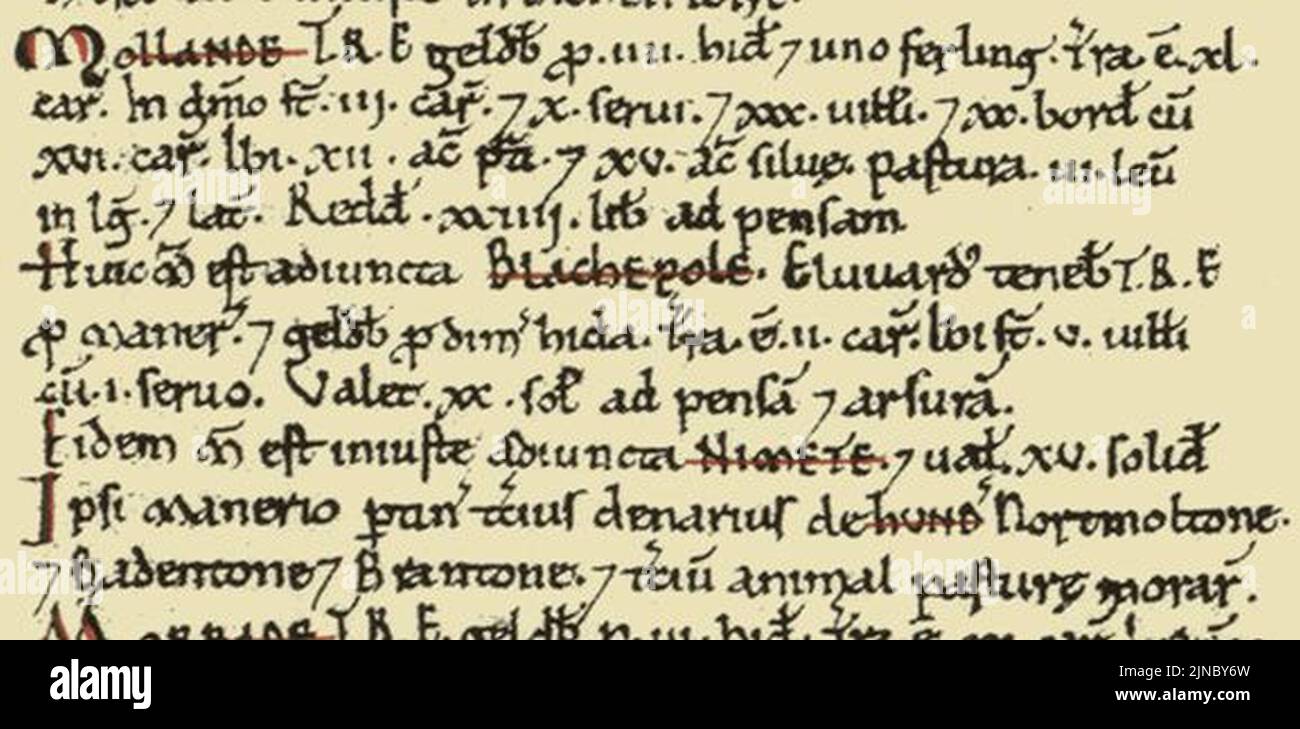 Mollande T.R.E geldb̄ ꝑ.iiii. hid̄ ⁊ uno ferling. t̄ra ē. xl.
car̄. In dn̄io st̄. iij. car̄. ⁊ x. serui. ⁊ xxx. uilłi. ⁊ xx. bord̄ cū
xvi. car̄. Ibi. xii. ac̄ p̄ti. ⁊ xv. ac̄ siluę. pastura. iii. leū
in lḡ. ⁊ lat̄. Redd̄. xxiiij. lib̄ ad pensam
Huic m̄ est adiuncta Blachepole. Eluuard' teneb̄ T.R.E
ꝓ maner̄. ⁊ geldb̄ ꝓ dim̄ hida. t̄ra. ē. ii. car̄. Ibi st̄. v. uilłi
cū. i. seruo. Valet. xx. sol̄ ad pensā ⁊ arsurā.
Eidem m̄ est iniuste adiuncta Nimete. ⁊ ual̄. xv. solid̄
Ipsi manerio ꝑtin̄ t̄cius denarius de hund̄ Nortmoltone.
⁊ Badentone ⁊ Brantone. ⁊ t̄ciū animal pasturę morar̄.
alamy
Image ID: 2JNBY6W
www.alamy.com